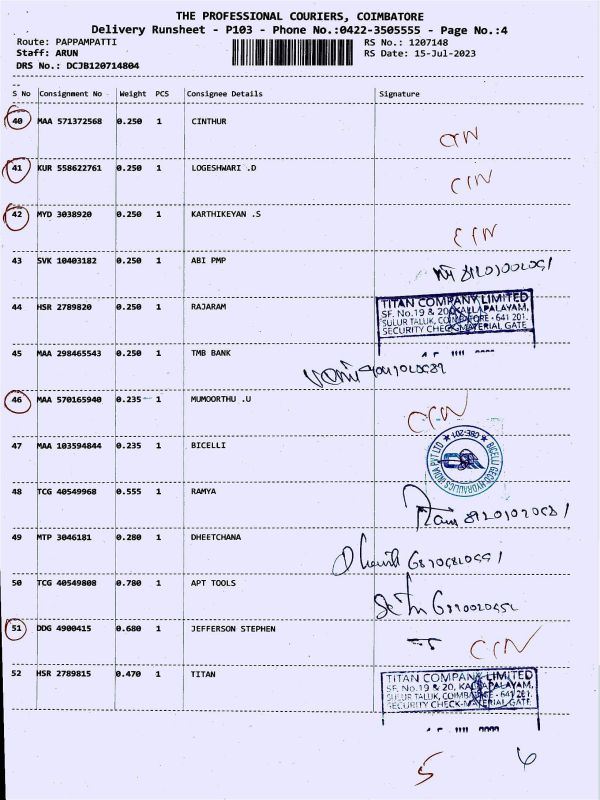 THE PROFESSIONAL COURIERS, COIMBATORE
Delivery Runsheet - P103 - Phone No.:0422-3505555 - Page No.:4
Route: PAPPAMPATTI RS No.: 1207148
Staff: ARUN RS Date: 15-Jul-2023
DRS No.: DCJB120714804
S No Consignment No Weight PCS Consignee Details Signature
40 MAA 571372568 0.250 1 CINTHUR
41 KUR 558622761 0.250 1 LOGESHWARI .D
42 MYD 3038920 0.250 1 KARTHIKEYAN .S
43 SVK 10403182 0.250 1 ABI PMP
44 HSR 2789820 0.250 1 RAJARAM
TITAN COMPANY LIMITED
SF. No.19 & 20, KALLAPALAYAM,
SULUR TALUK, COIMBATORE - 641 201.
SECURITY CHECK-MATERIAL GATE
45 MAA 298465543 0.250 1 TMB BANK
46 MAA 570165940 0.235 1 MUMOORTHU .U
47 MAA 103594844 0.235 1 BICELLI
48 TCG 40549968 0.555 1 RAMYA
49 MTP 3046181 0.280 1 DHEETCHANA
50 TCG 40549808 0.780 1 APT TOOLS
51 DDG 4900415 0.680 1 JEFFERSON STEPHEN
52 HSR 2789815 0.470 1 TITAN
TITAN COMPANY LIMITED
SF. No.19 & 20, KALLAPALAYAM,
SULUR TALUK, COIMBATORE - 641 201.
SECURITY CHECK-MATERIAL GATE
5 6